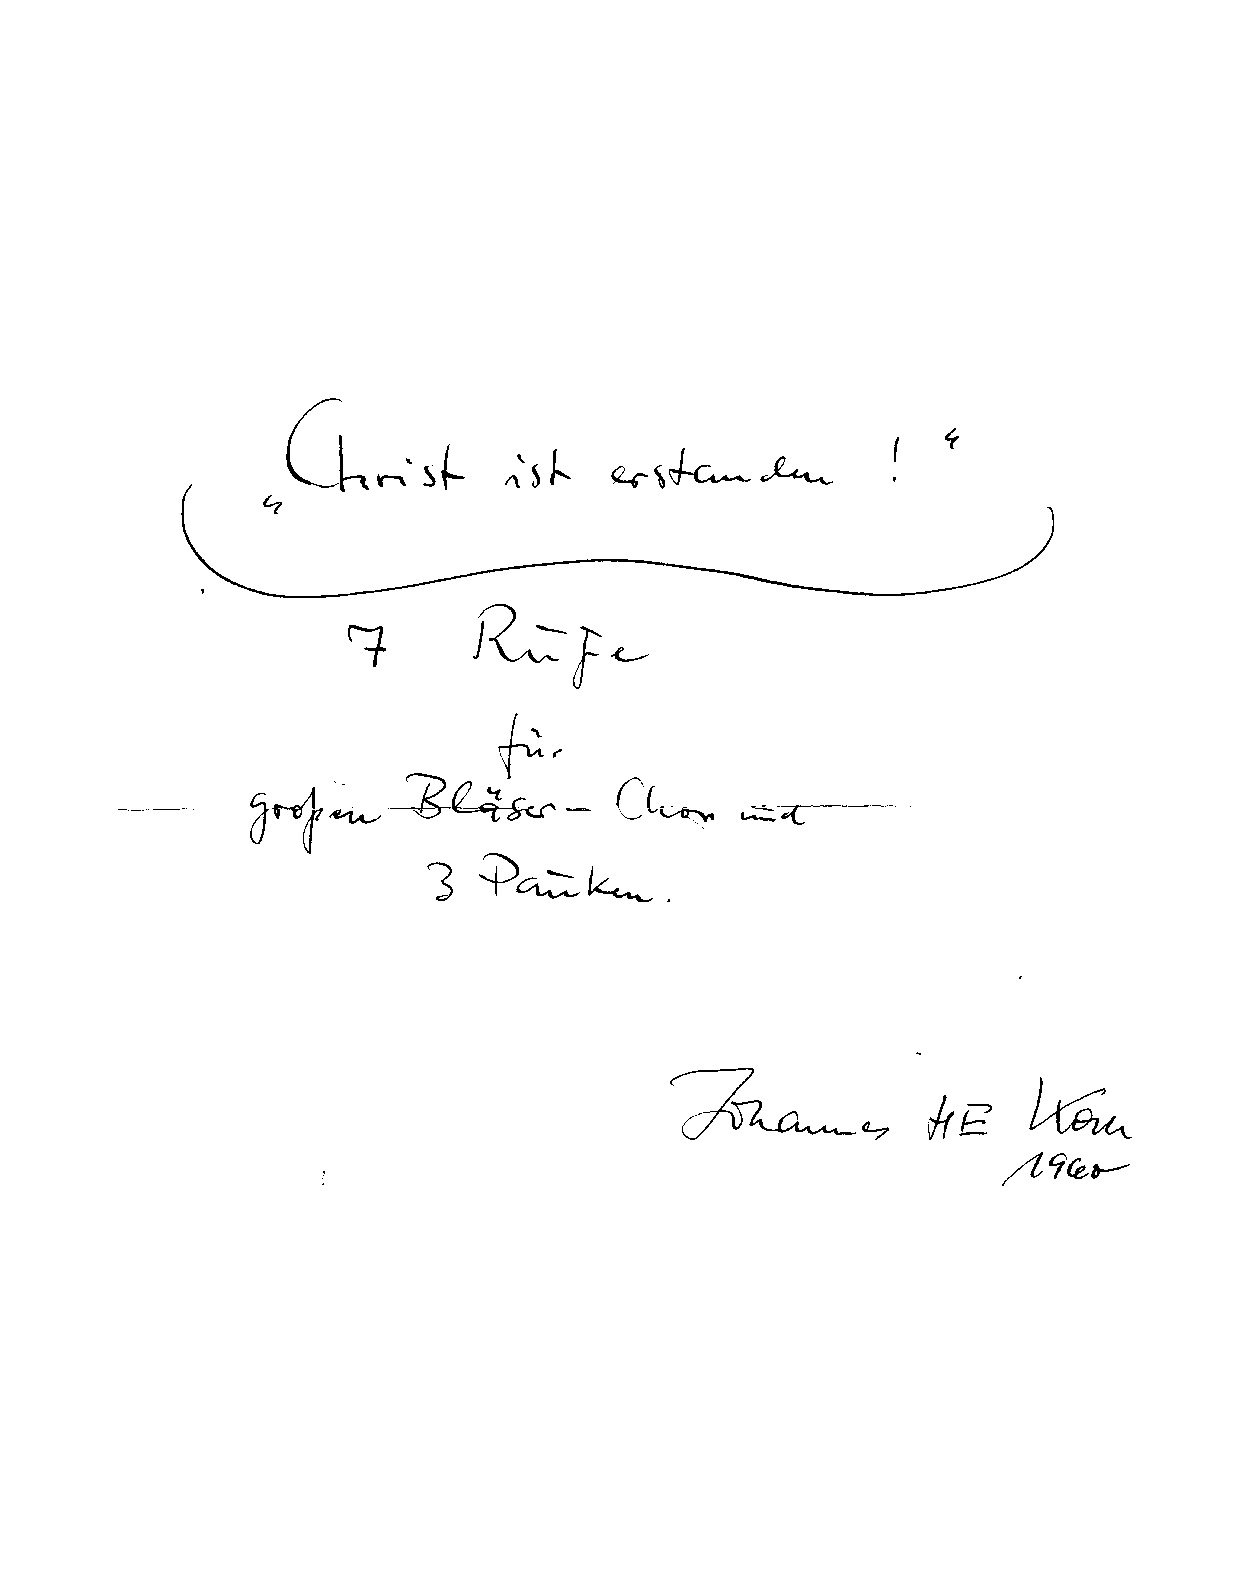 „Christ ist erstanden !“
7 Rufe
für
großen Bläser - Chor und
3 Pauken.
Johannes HE Korn
1960